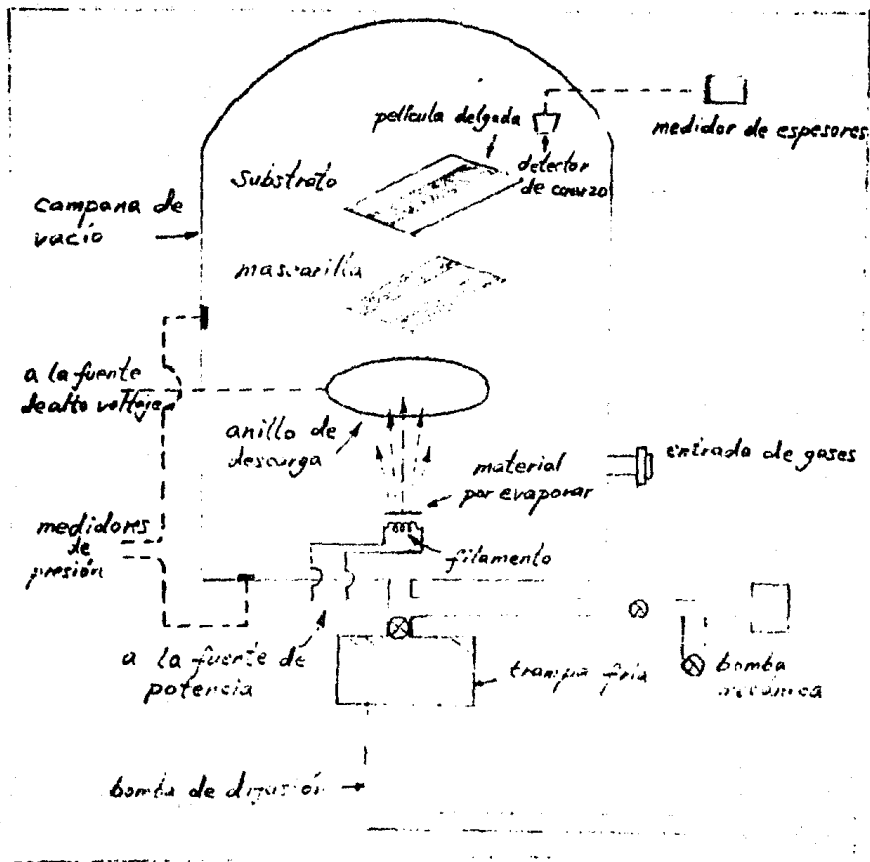 película delgada
medidor de espesores
detector
de cuarzo
substrato
campana de
vacío
mascarilla
a la fuente
de alto voltaje
anillo de
descarga
entrada de gases
material
por evaporar
medidores
de
presión
filamento
a la fuente de
potencia
trampa fría
bomba
mecánica
bomba de difusión